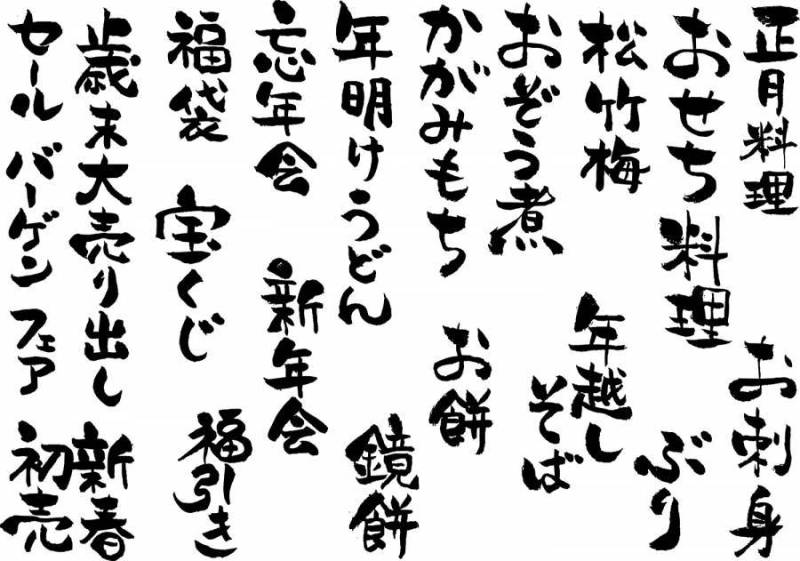 正月料理
おせち料理
お刺身
ぶり
松竹梅
年越し
そば
おぞう煮
かがみもち
お餅
年明けうどん
鏡餅
忘年会
新年会
福袋
宝くじ
福引き
歳末大売り出し
セール バーゲン フェア
新春
初売